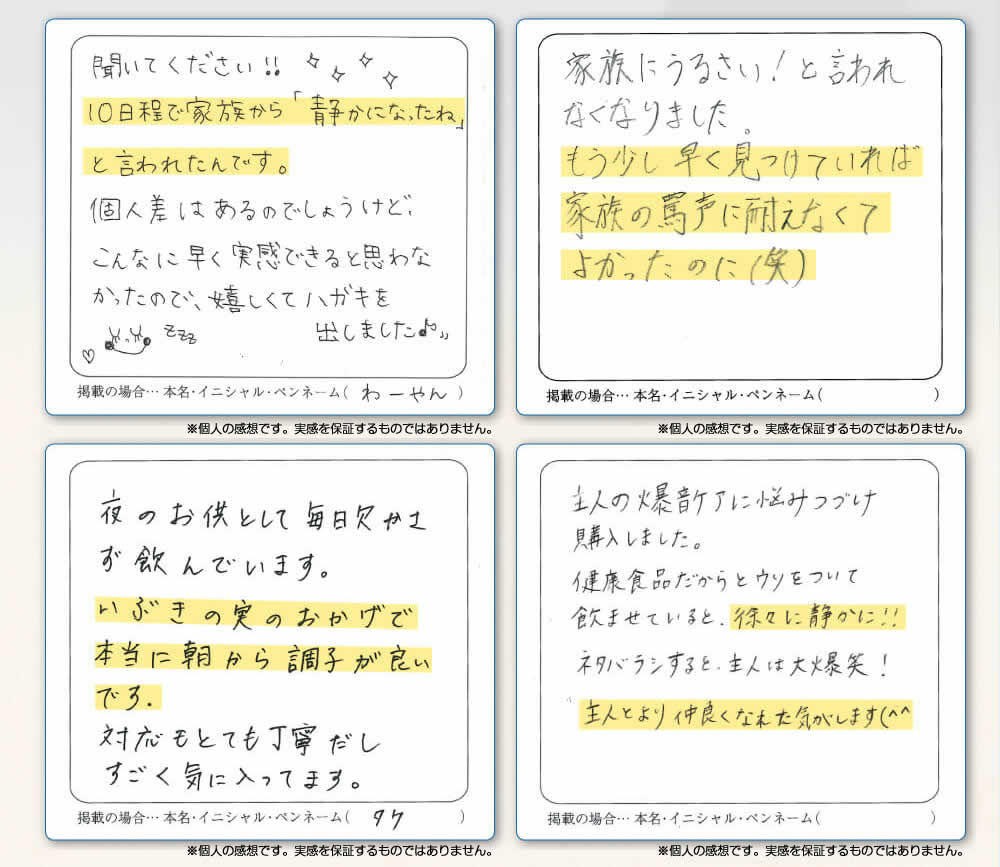 聞いてください!!
10日程で家族から「静かになったね」
と言われたんです。
個人差はあるのでしょうけど、
こんなに早く実感できると思わな
かったので、嬉しくてハガキを
出しました♪
zzz
掲載の場合… 本名・イニシャル・ペンネーム( わーやん )
※個人の感想です。実感を保証するものではありません。
家族にうるさい!と言われ
なくなりました。
もう少し早く見つけていれば
家族の罵声に耐えなくて
よかったのに(笑)
掲載の場合… 本名・イニシャル・ペンネーム( )
※個人の感想です。実感を保証するものではありません。
夜のお供として毎日欠かさ
ず飲んでいます。
いぶきの実のおかげで
本当に朝から調子が良い
です.
対応もとても丁寧だし
すごく気に入ってます。
掲載の場合… 本名・イニシャル・ペンネーム( タケ )
※個人の感想です。実感を保証するものではありません。
主人の爆音ケアに悩みつづけ
購入しました。
健康食品だからとウソをついて
飲ませていると、徐々に静かに!!
ネタバラシすると、主人は大爆笑!
主人とより仲良くなれた気がします(^^
掲載の場合… 本名・イニシャル・ペンネーム( )
※個人の感想です。実感を保証するものではありません。